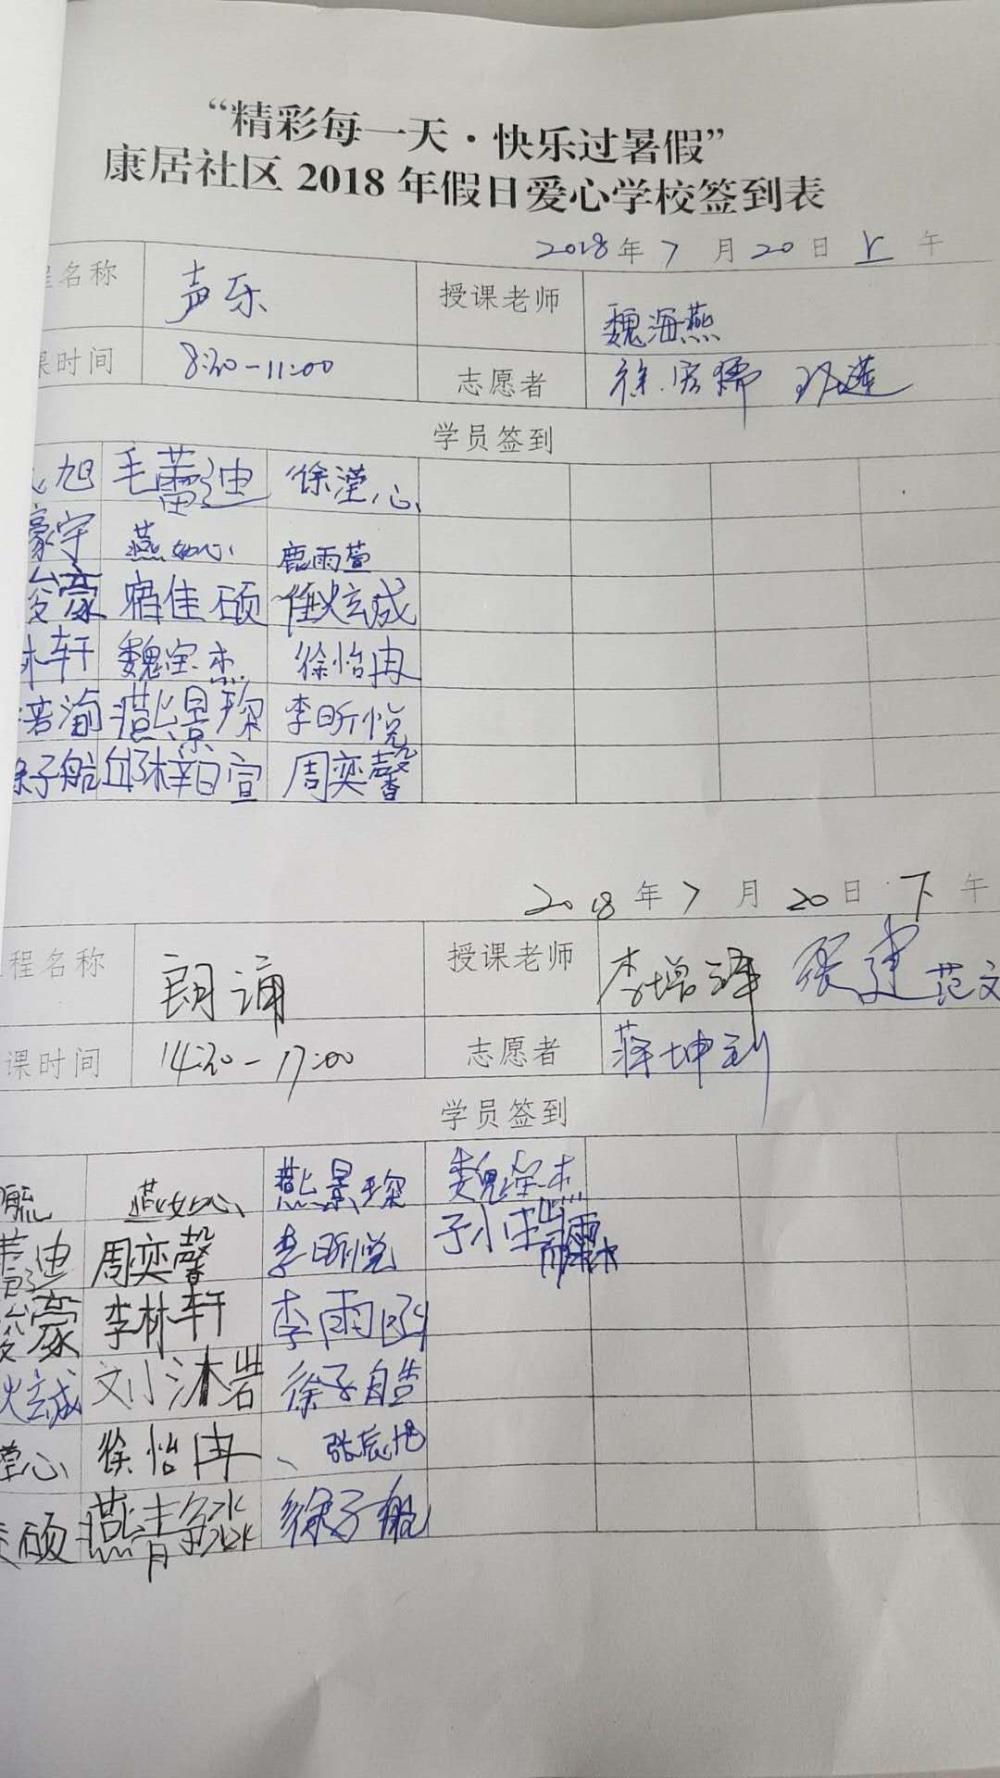 “精彩每一天·快乐过暑假”
康居社区 2018 年假日爱心学校签到表
2018年7月20日上午
名称 声乐 授课老师 魏海燕
课时间 8:30-11:00 志愿者 徐
学员签到
旭 毛蕾迪 徐滢心
豪宇 燕如心 鹿雨萱
俊豪 宿佳硕 任炫成
林轩 魏宝杰 徐怡冉
培渝 燕景琛 李昕悦
徐子航 邱梓宣 周奕馨
2018年7月20日下午
程名称 朗诵 授课老师 李增 张建 范文
课时间 14:30-17:00 志愿者 蒋坤
学员签到
毓 燕如心 燕景琛 魏宝杰
蕾迪 周奕馨 李昕悦
俊豪 李林轩 李雨
炫成 刘沐岩 徐子皓
滢心 徐怡冉 、 张辰旭
佳硕 燕青 徐子航